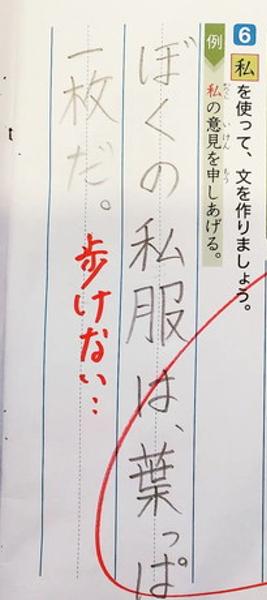 6 私を使って、文を作りましょう。
例 私の意見を申しあげる。
ぼくの私服は、葉っぱ
一枚だ。
歩けない…